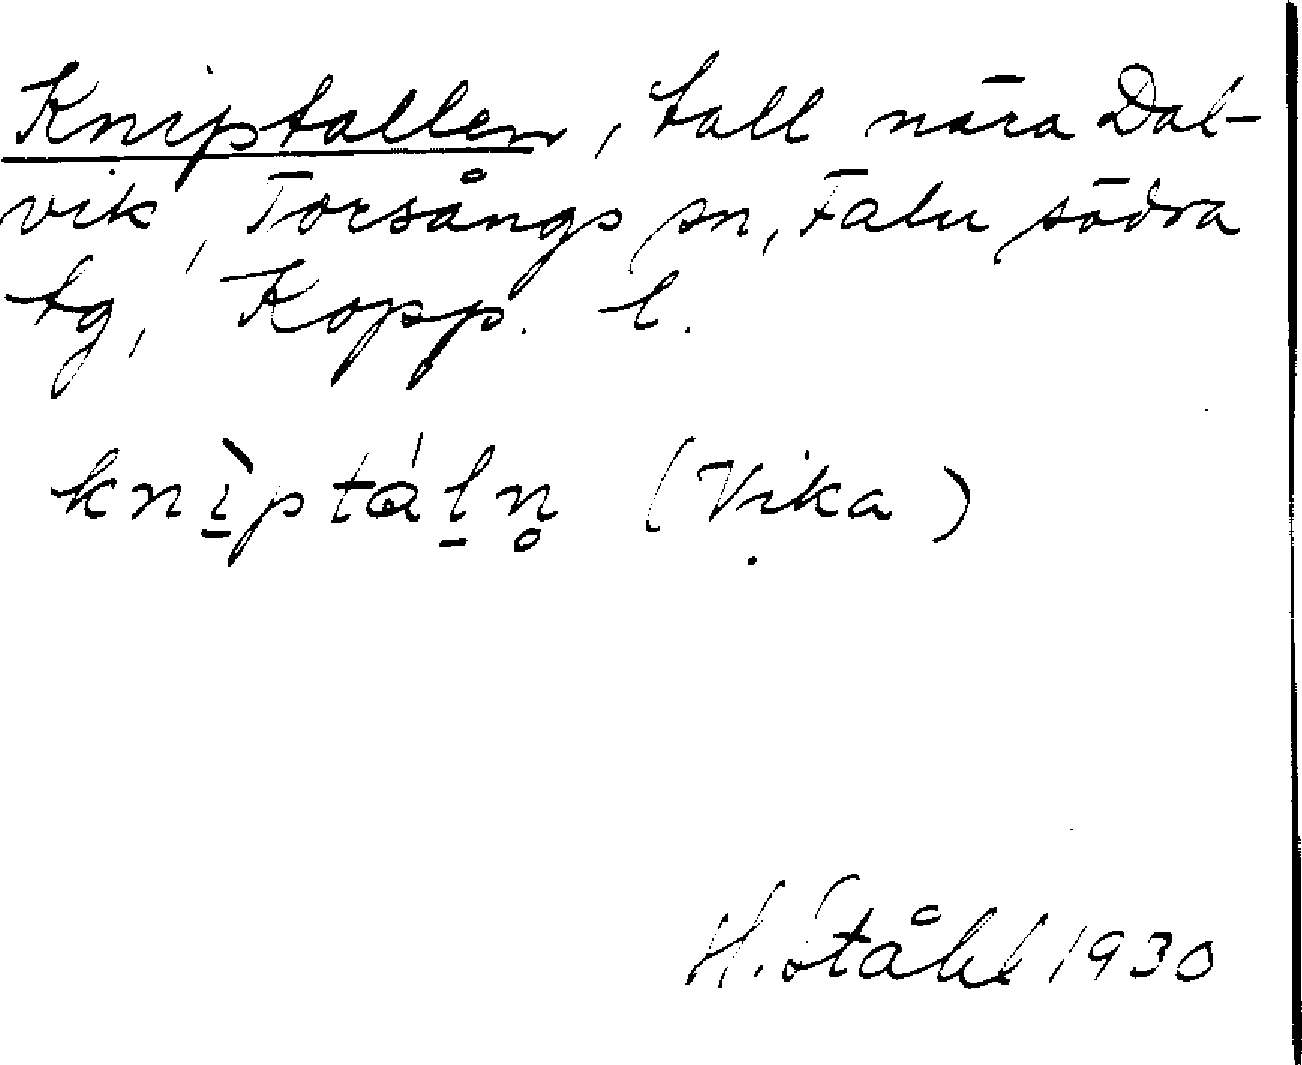 Kniptallen, tall nära Dal-
vik, Torsångs sn, Falu södra
tg, Kopp. l.
knı̱̀ptáḻn̥ (Vika)
H. Ståhl 1930